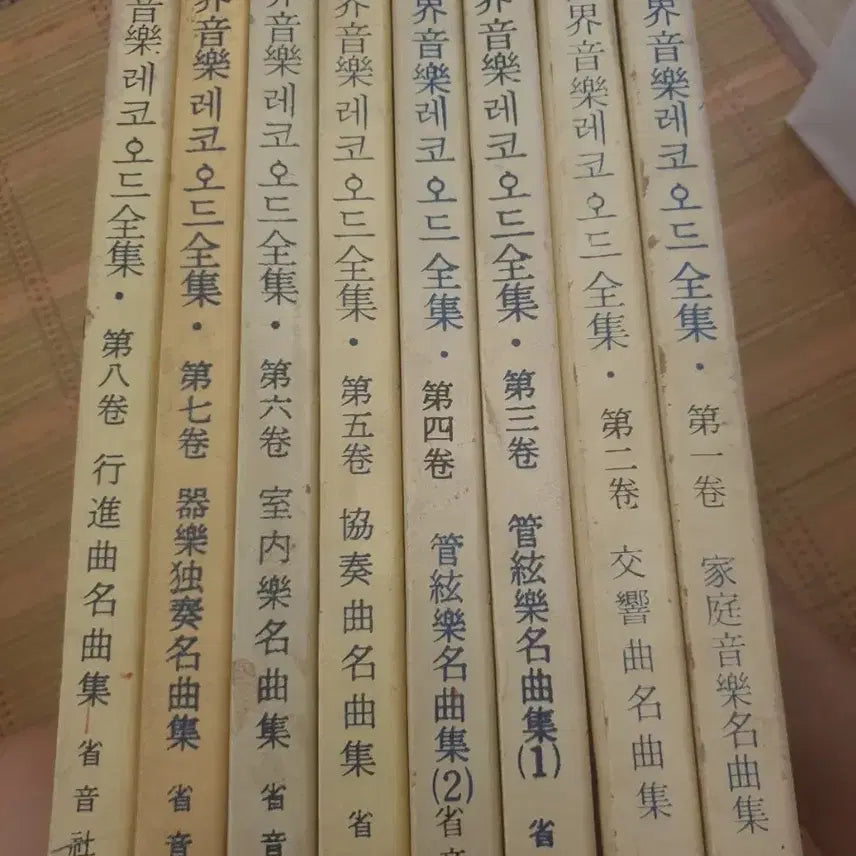 音樂레코오드全集·第八卷 行進曲名曲集 省音社
界音樂레코오드全集·第七卷 器樂独奏名曲集 省音
界音樂레코오드全集·第六卷 室内樂名曲集 省音
界音樂레코오드全集·第五卷 協奏曲名曲集 省
界音樂레코오드全集·第四卷 管絃樂名曲集(2) 省音
界音樂레코오드全集·第三卷 管絃樂名曲集(1) 省
界音樂레코오드全集·第二卷 交響曲名曲集
界音樂레코오드全集·第一卷 家庭音樂名曲集